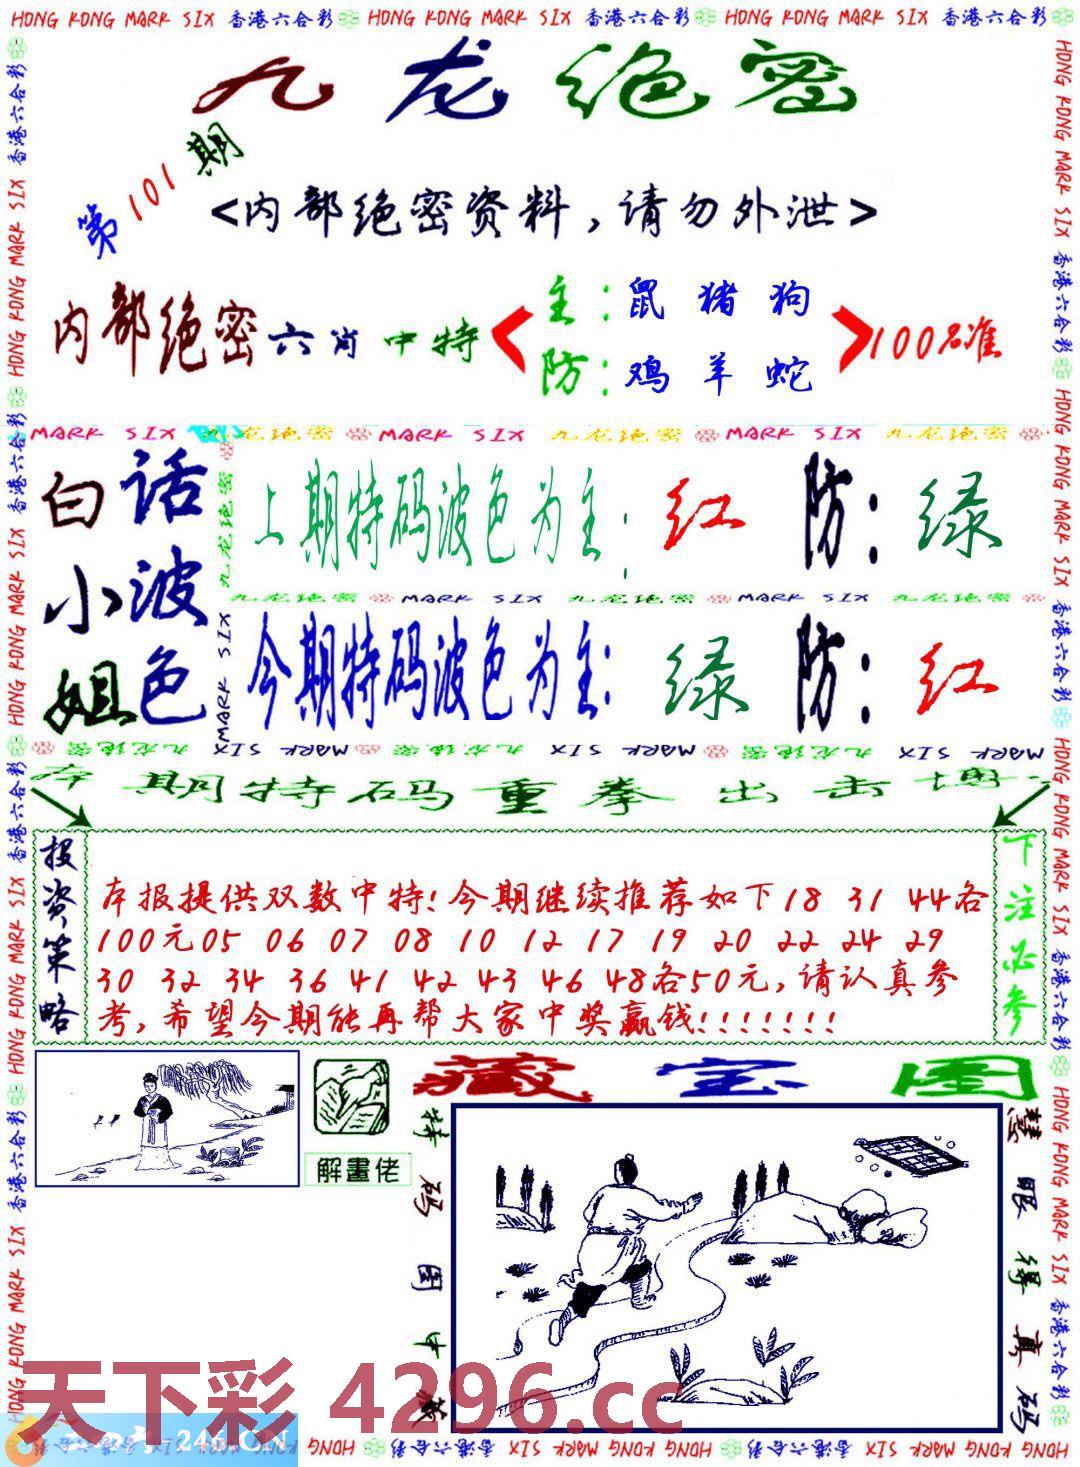 HONG KONG MARK SIX 香港六合彩 HONG KONG MARK SIX 香港六合彩 HONG KONG MARK SIX 香港六合彩
九龙绝密
第101期
<内部绝密资料,请勿外泄>
内部绝密六肖中特
主:鼠 猪 狗
防:鸡 羊 蛇
100%准
MARK SIX 九龙绝密 MARK SIX 九龙绝密 MARK SIX 九龙绝密
白
小
姐
话
波
色
上期特码波色为主:红 防:绿
九龙绝密 MARK SIX 九龙绝密 MARK SIX 九龙绝密
今期特码波色为主:绿 防:红
九龙绝密 MARK SIX 九龙绝密 MARK SIX 九龙绝密 MARK SIX
本期特码重拳出击博
投资策略
本报提供双数中特!今期继续推荐如下18 31 44各
100元05 06 07 08 10 12 17 19 20 22 24 29
30 32 34 36 41 42 43 46 48各50元,请认真参
考,希望今期能再帮大家中奖赢钱!!!!!!!
下注必参
解畫佬
藏宝图
特码图中藏
慧眼得真码
天下彩 4296.cc
246.CN
HONG KONG MARK SIX 香港六合彩